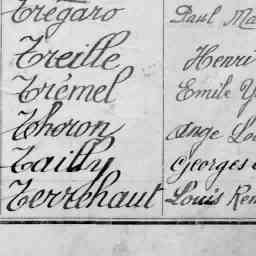 Trégaro Paul
Treille Henri
Trémel Emile
Thoron Ange
Tailly Georges
Terrehaut Louis